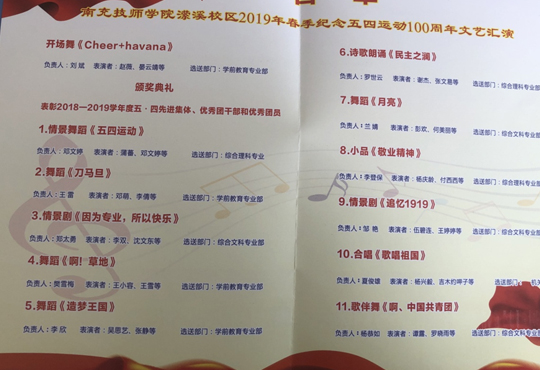 南充技师学院潆溪校区2019年春季纪念五四运动100周年文艺汇演
开场舞《Cheer+havana》
负责人：刘斌 表演者：赵薇、晏云靖等 选送部门：学前教育专业部
颁奖典礼
表彰2018—2019学年度五·四先进集体、优秀团干部和优秀团员
1.情景舞蹈《五四运动》
负责人：邓文婷 表演者：蒲蕃、邓文婷等 选送部门：综合理科专业
2.舞蹈《刀马旦》
负责人：王蕾 表演者：邓萌、李倩等 选送部门：学前教育专业部
3.情景剧《因为专业，所以快乐》
负责人：郑太勇 表演者：李双、沈文东等 选送部门：综合文科专业部
4.舞蹈《啊！草地》
负责人：樊雪梅 表演者：王小容、王雪等 选送部门：学前教育专业部
5.舞蹈《造梦王国》
负责人：李欣 表演者：吴思艺、张静等 选送部门：学前教育专业部
6.诗歌朗诵《民主之澜》
负责人：罗世云 表演者：谢杰、张文悬等 选送部门：综合理科专业部
7.舞蹈《月亮》
负责人：兰婧 表演者：彭欢、何美丽等 选送部门：综合文科专业部
8.小品《敬业精神》
负责人：李登保 表演者：杨庆龄、付西西等 选送部门：综合理科专业部
9.情景剧《追忆1919》
负责人：邹艳 表演者：伍碧连、王婷婷等 选送部门：综合文科专业部
10.合唱《歌唱祖国》
负责人：夏俊雄 表演者：杨兴毅、吉木约呷子等 选送部门：机关
11.歌伴舞《啊、中国共青团》
负责人：杨恭如 表演者：谭露、罗晓雨等 选送部门：综合文科专业部